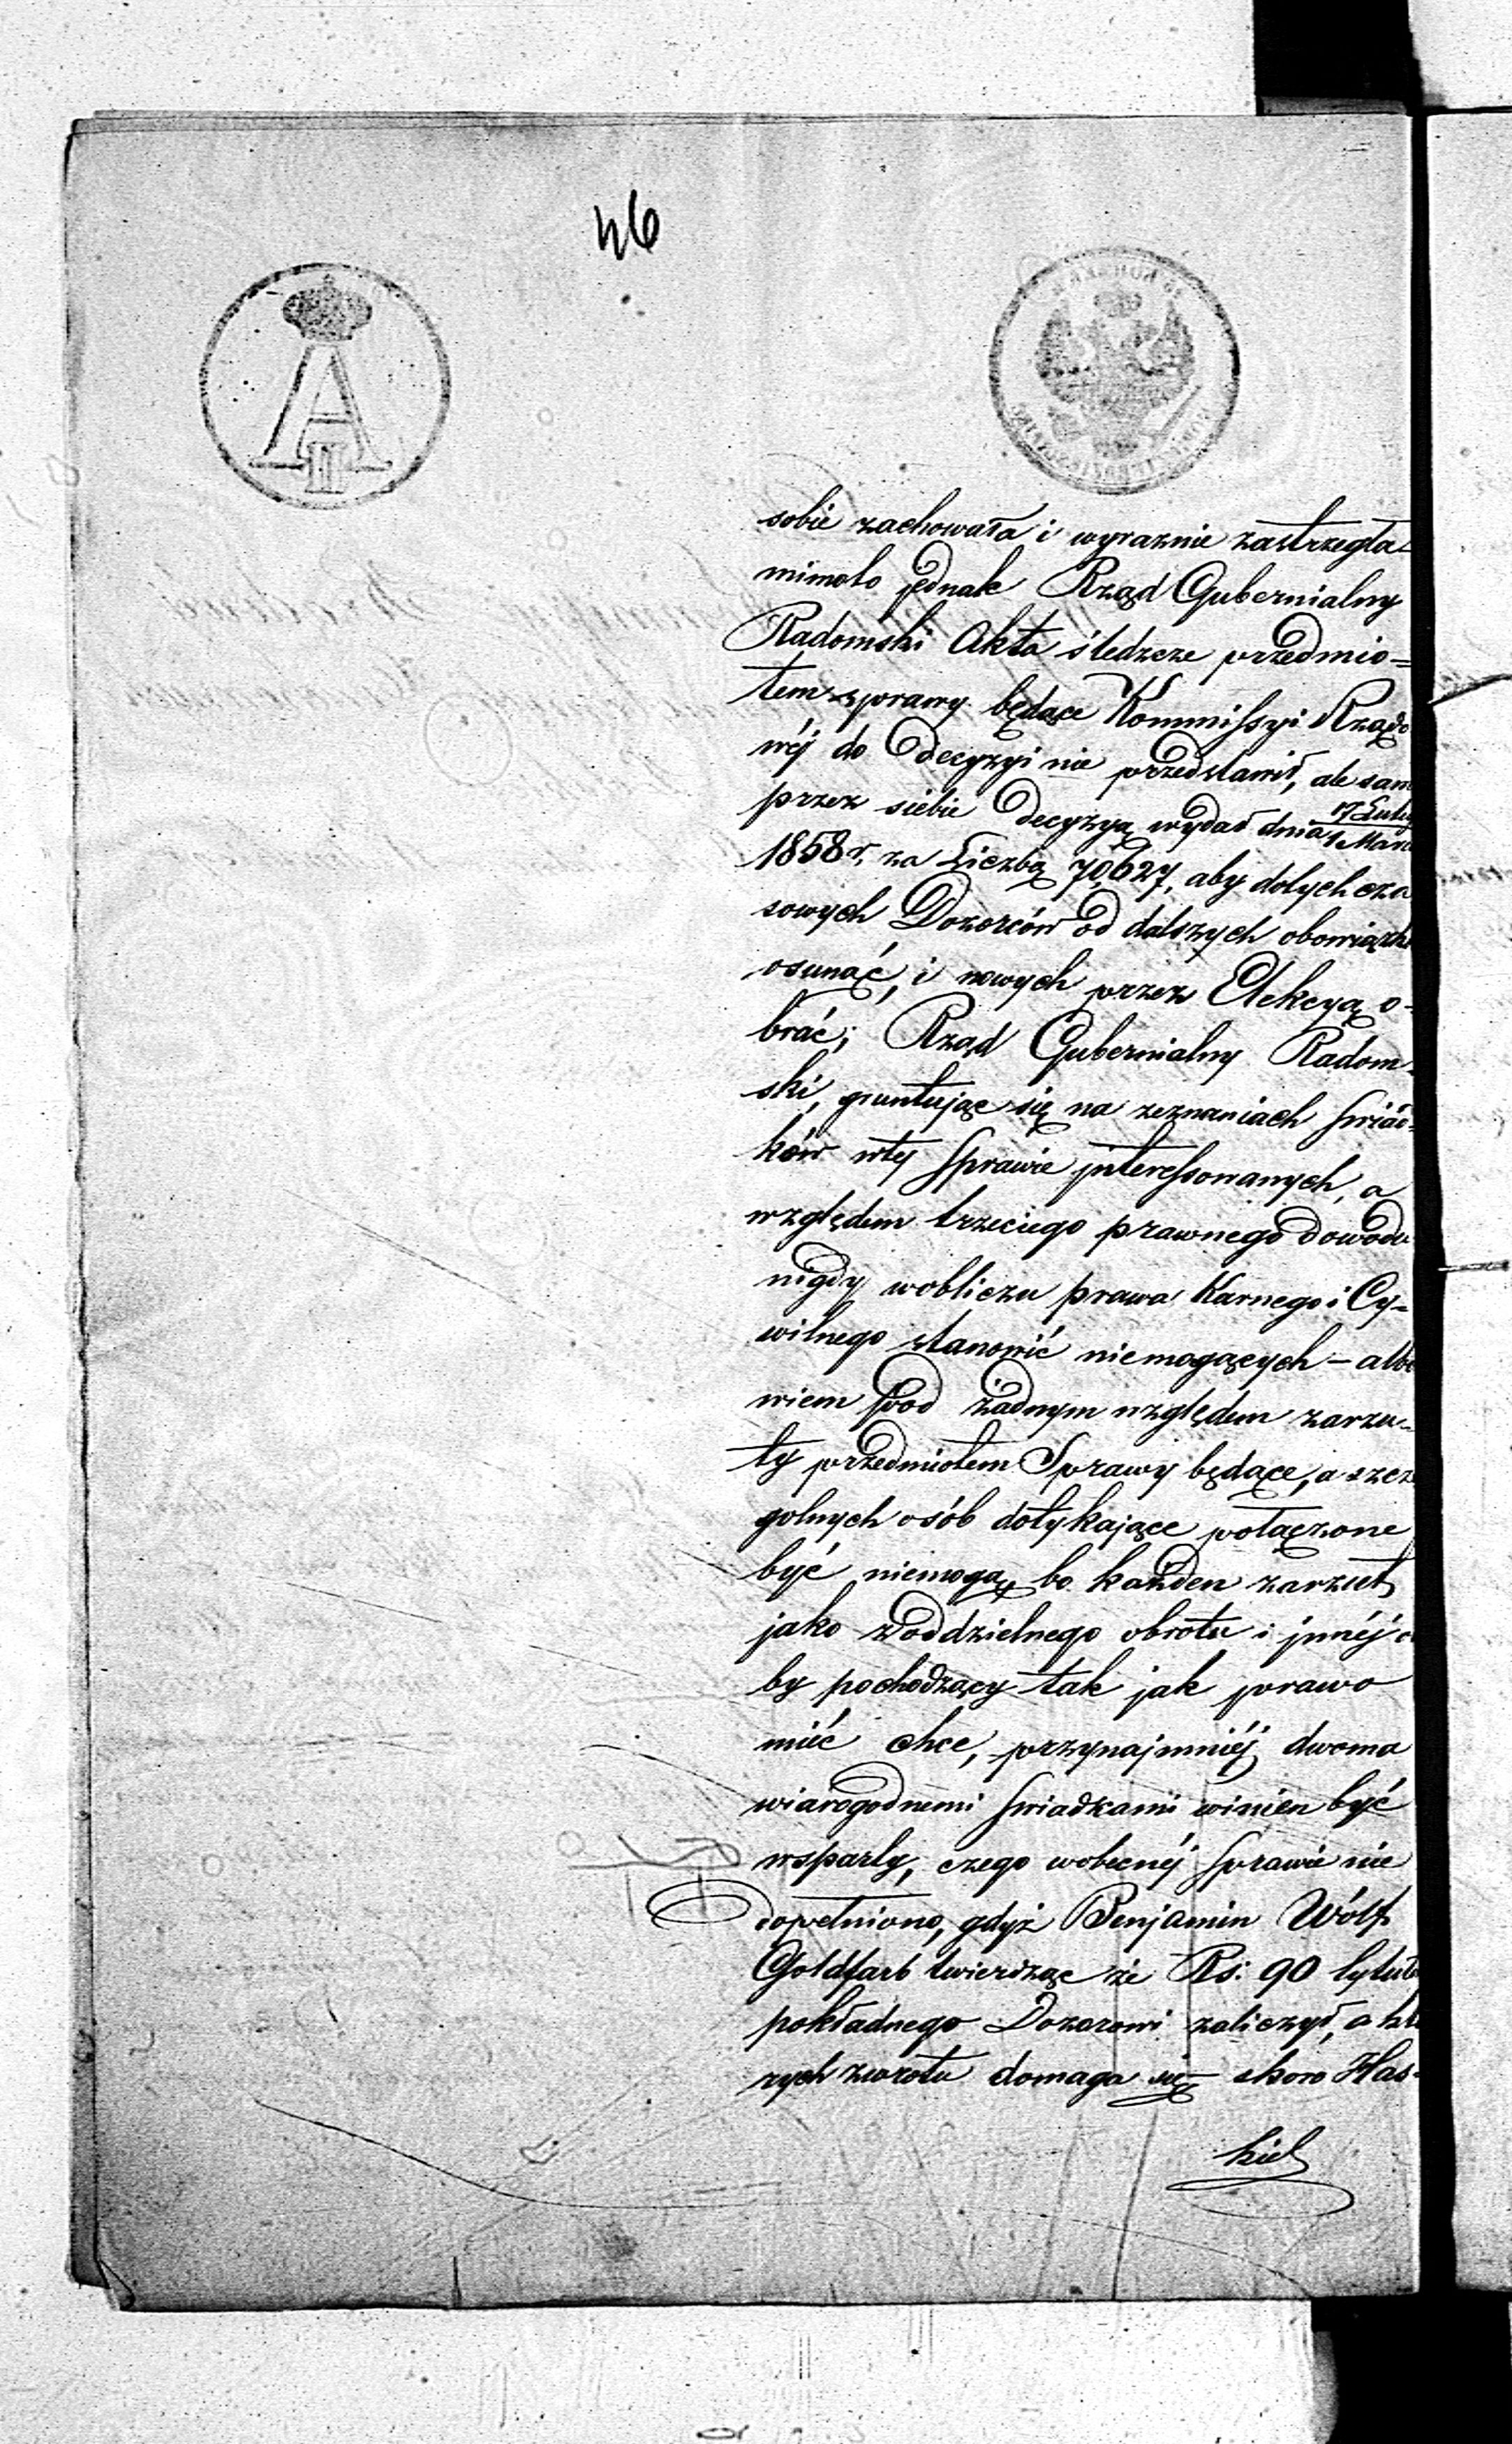 46
A
II
sobie zachowała i wyraznie zastrzegła
mimoto jednak Rząd Gubernialny
Radomski Akta śledzcze przedmio=
tem sprawy będące Kommissyi Rządo
wéj do decyzyi nie przedstawił, ale sam
przez siebie decyzyą wydał dnia 17 Luteg
1 Marc
1858 r. za Liczbą 70,627, aby dotychcza
sowych Dozorców od dalszych obowiązk
osunąć, i nowych przez Elekcyą o-
brać; Rząd Gubernialny Radom-
ski, gruntując się na zeznaniach swiad-
ków wtej sprawie interessowanych, a
względem trzeciego prawnego dowodu
nigdy wobliczu prawa Karnego i Cy-
wilnego stanowić niemogących – albo
wiem pod żadnym względem zarzu-
ty przedmiotem Sprawy będące, a szcze
golnych osób dotykające połączone
być niemogą, bo każden zarzut
jako z oddzielnego obrotu i innéj o
by pochodzący tak jak prawo
mieć chce, przynajmniéj dwoma
wiarogodnemi swiadkami winien być
wsparty, czego wobecnéj sprawie nie
dopełniono, gdyż Benjamin Wólf
Goldfarb twierdząc że Rs: 90 tytuł
pokładnego Dozorowi zaliczył, a któ
rych zwrotu domaga się skoro Has-
kiel